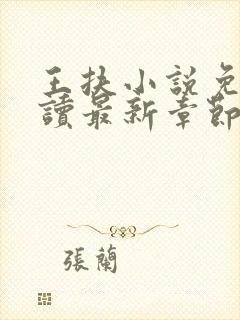 王抉小說免
讀最新章節
張蘭